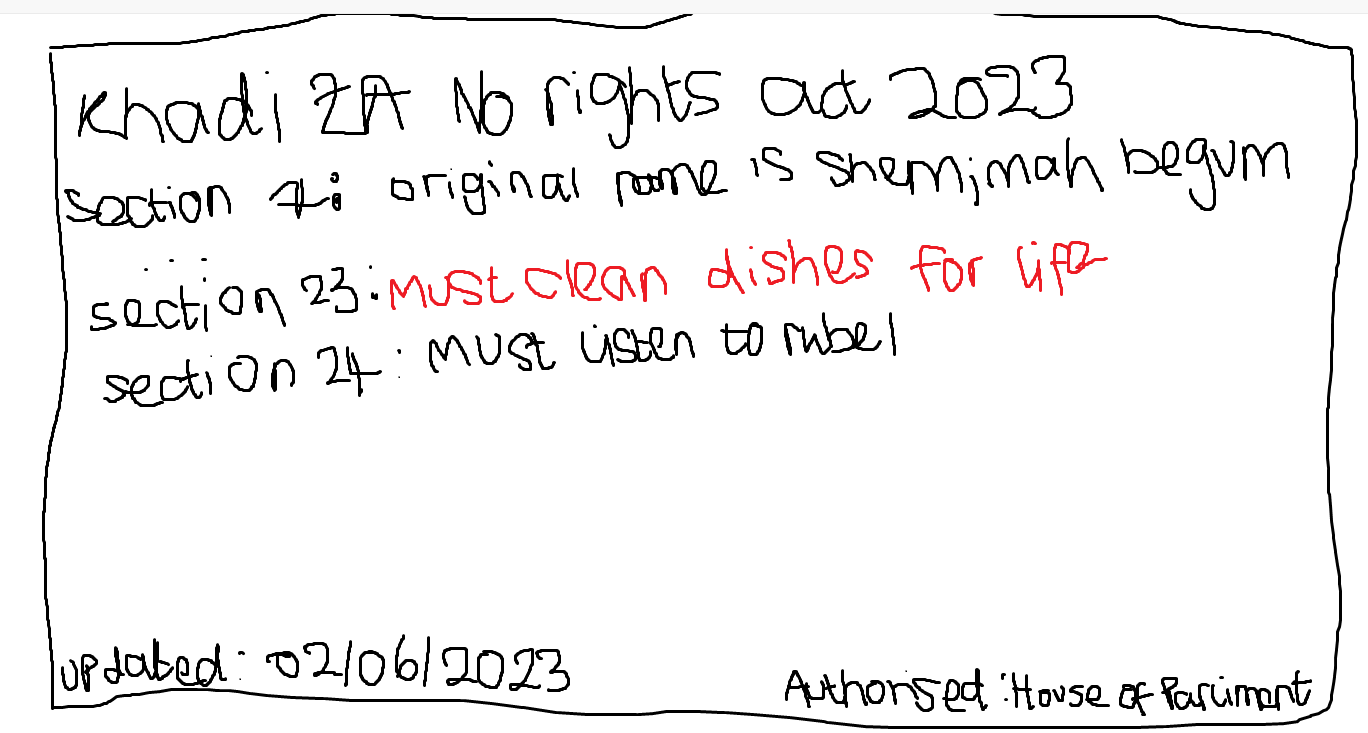 Khadi ZA No rights act 2023
section 1: original name is shemimah begum
...
section 23: Must clean dishes for life
section 24: Must listen to rubel
updated: 02/06/2023
Authorised: House of Parliment